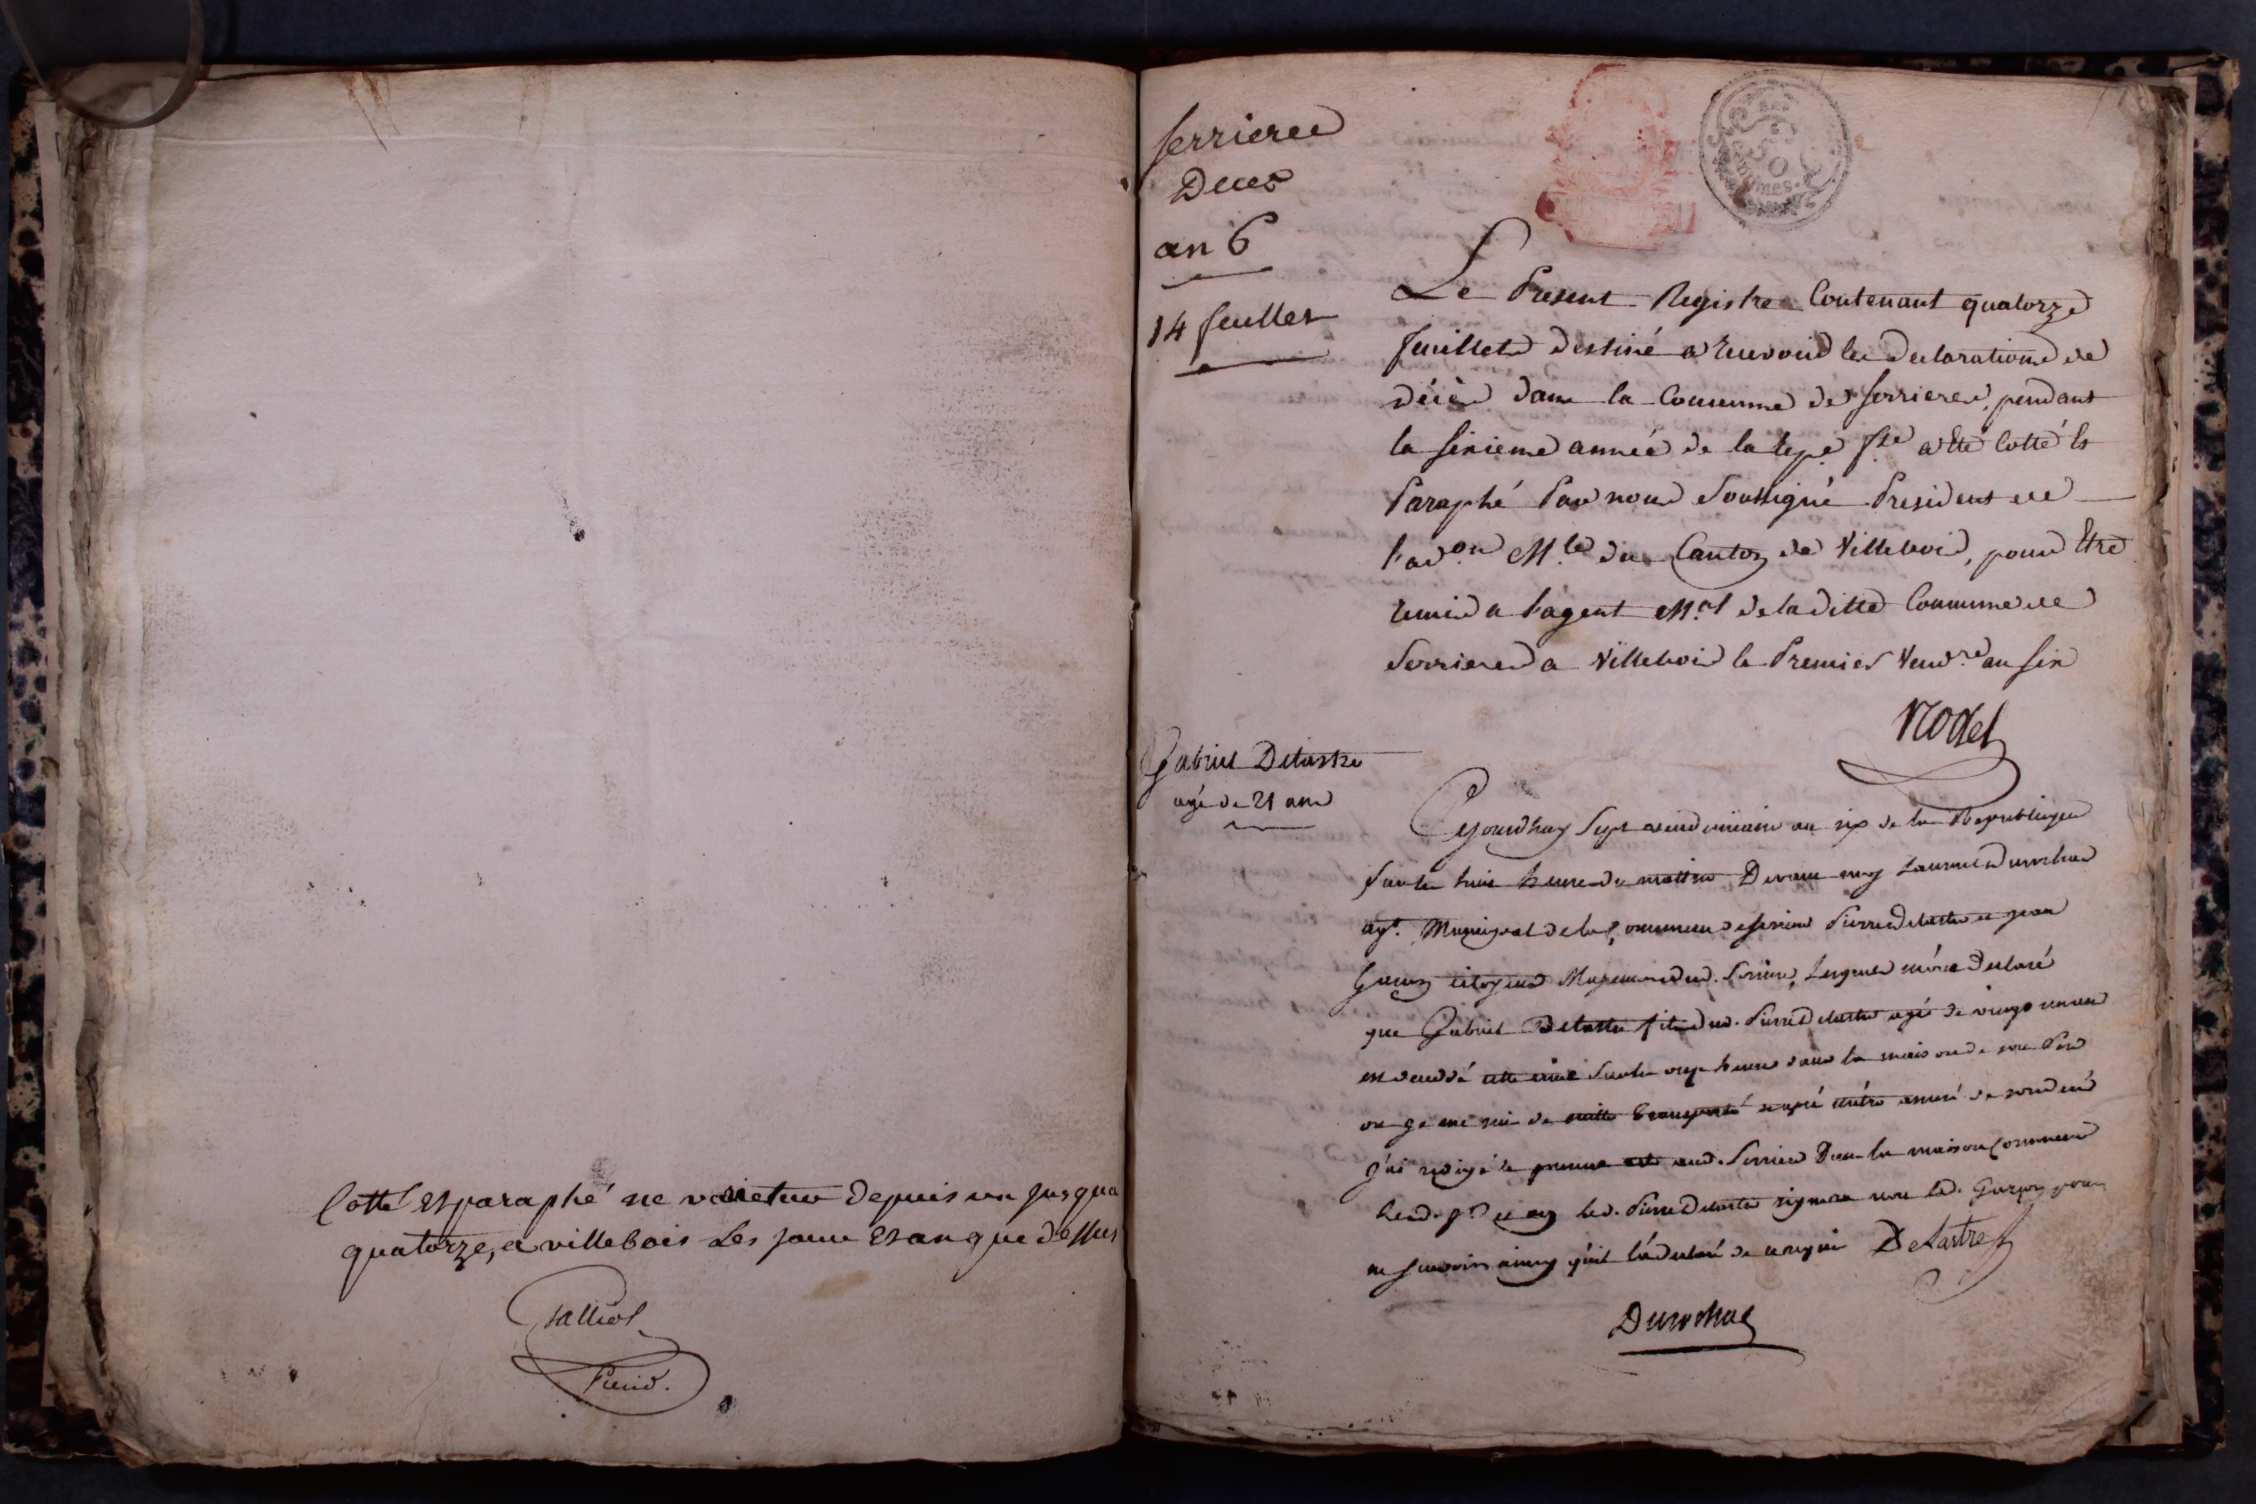 Cotté Et paraphé ne varietur depuis un jusqua
quatorze, a villebois Les jour Et an que dessus
Presid.
Serrieres
Deces
an 6
14 feuillet
50
Le Present Registre Contenant quatorze
feuillets destiné a recevoir les declarations de
décès dans la Commune de Serrieres, pendant
la sixieme année de la Repe fse a Eté Cotté Et
Paraphé Par nous Soussigné President de
l'adon Mle du Canton de Villebois, pour Etre
remis a l'agent Mal de la ditte Commune de
Serrieres a Villebois le Premier Vendre an six
Nodet
Gabriel Delastre
agé de 21 ans
Cejourdhuy Sept vendemiaire an six de la Republique
Sur les huit heures du mattin Devant moy Laurent Durochat
agt. Municipal de la Commune de Serriere Pierre Delastre et jean
citoyens dud. Serriere, Lesquels m'ont Declaré
que Gabriel Delastre fils dud. Pierre Delastre agé de vingt un an
est deceddé sur les onze heures dans la maison de son Pere
ou je me suis de suitte transporté et apré m'étre assuré de son decé
j'ai redigé le present acte aud. Serriere Dans la maison Commune
Lesd. jr et an led. Pierre Delastre signera non led.
ne savoir ainsy quil l'a declaré de ce requi Delastre
Durochat